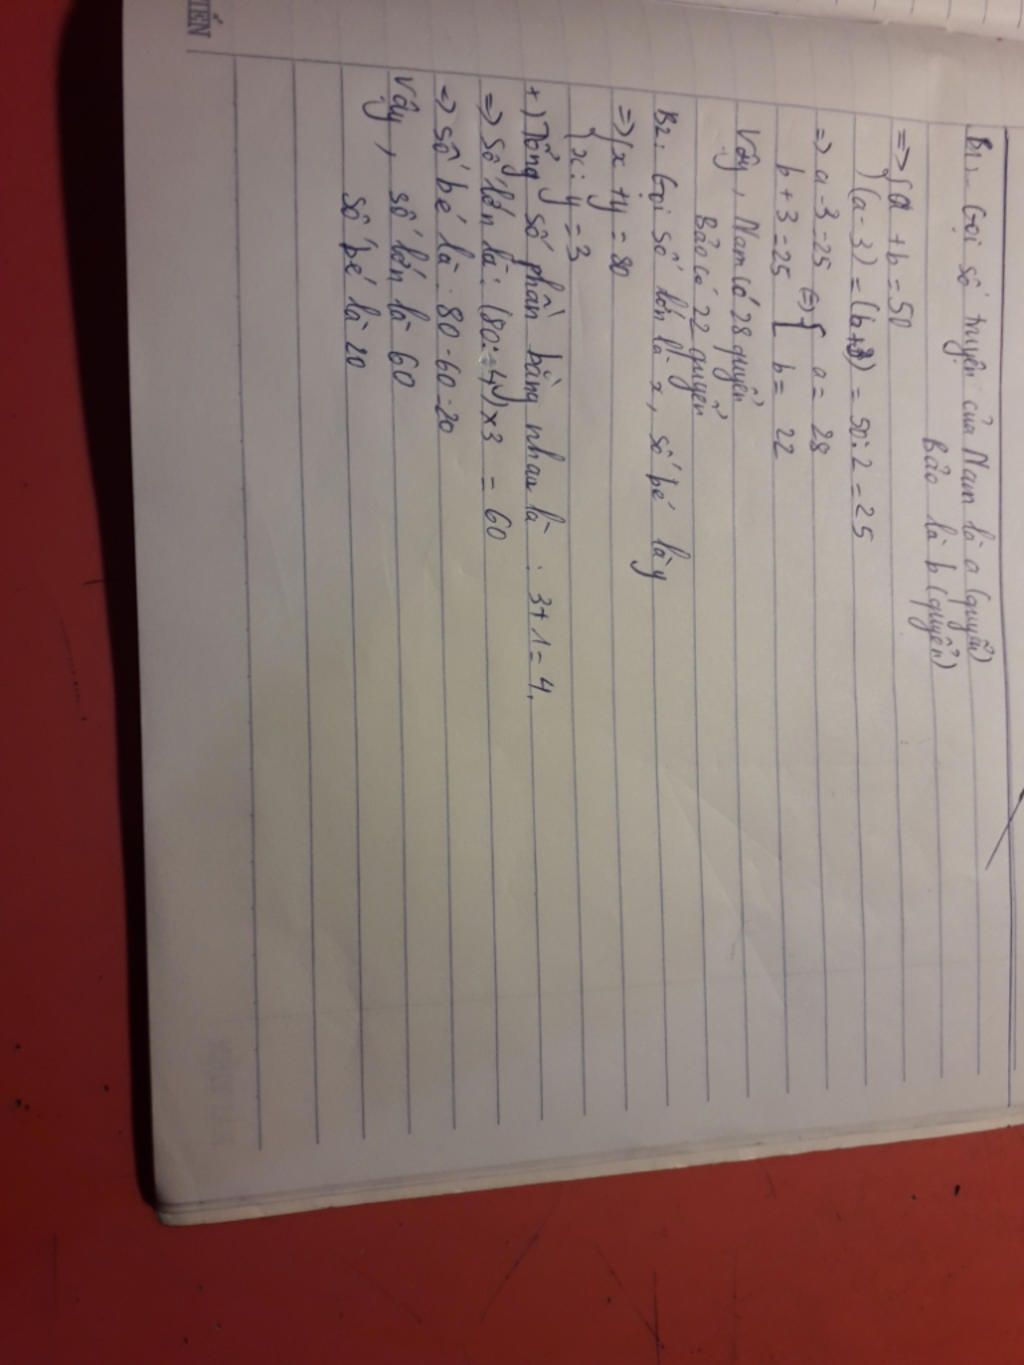 B1.- Gọi số truyện của Nam là a (quyển)
Bảo là b (quyển)
=> { a + b = 50
(a - 3) = (b + 3) = 50 : 2 = 25
=> a - 3 = 25 <=> { a = 28
b + 3 = 25 b = 22
Vậy, Nam có 28 quyển
Bảo có 22 quyển
B2. Gọi số lớn là x, số bé là y
=> { x + y = 80
x : y = 3
+) Tổng số phần bằng nhau là : 3 + 1 = 4.
=> số lớn là : (80 : 4) x 3 = 60
=> số bé là : 80 - 60 = 20
Vậy, số lớn là 60
số bé là 20